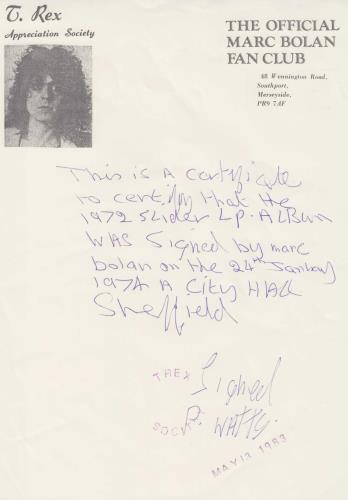 T. Rex
Appreciation Society
THE OFFICIAL
MARC BOLAN
FAN CLUB
48 Wennington Road,
Southport,
Merseyside,
PR9 7AF
This is A certificate
to certify that the
1972 Slider LP. ALBUM
WAS Signed by marc
bolan on the 24th January
1974 A City HALL
Sheffield
TREX
Signed
SOCIETY
P. WATTS.
MAY 13 1983